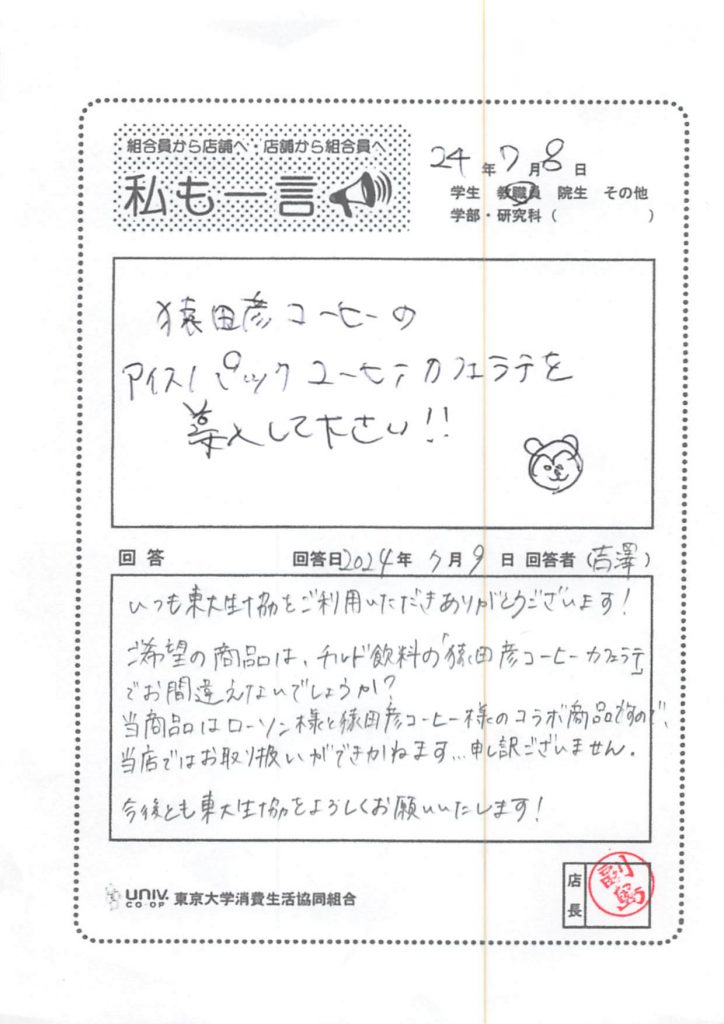 組合員から店舗へ・店舗から組合員へ
私も一言
24年7月8日
学生 教職員 院生 その他
学部・研究科( )
猿田彦コーヒーの
アイスパックコーヒー カフェラテを
導入して下さい!!
回答 回答日2024年7月9日 回答者(吉澤)
いつも東大生協をご利用いただきありがとうございます!
ご希望の商品は、チルド飲料の「猿田彦コーヒーカフェラテ」
でお間違えないでしょうか?
当商品はローソン様と猿田彦コーヒー様のコラボ商品ですので、
当店ではお取り扱いができかねます…申し訳ございません。
今後とも東大生協をよろしくお願いいたします!
UNIV. CO-OP 東京大学消費生活協同組合
店長